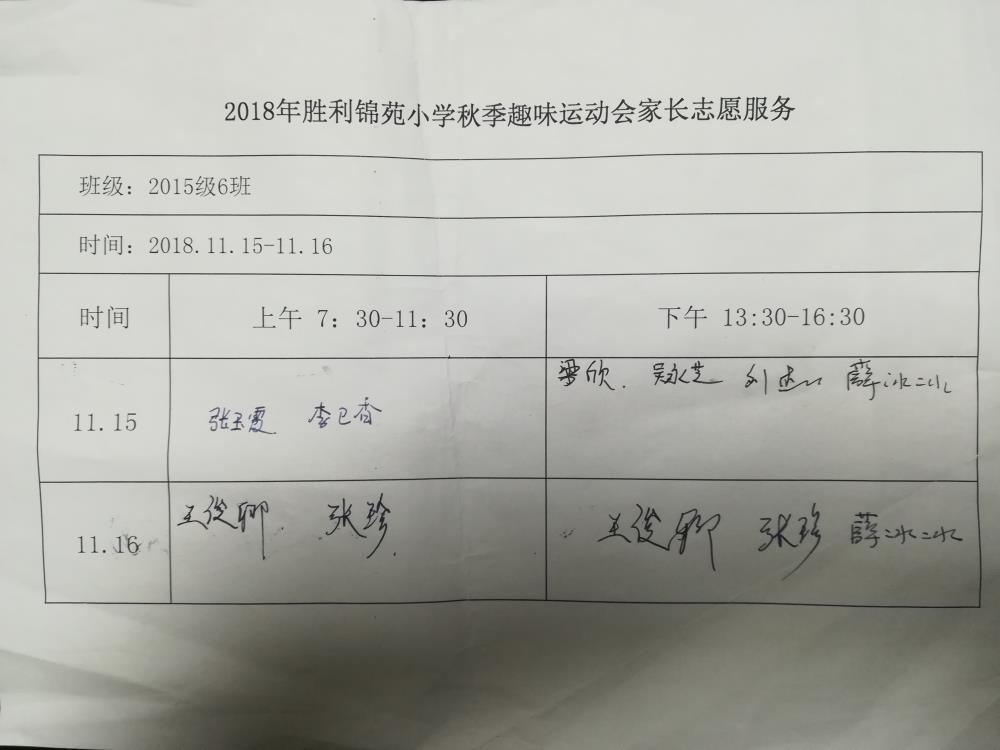 2018年胜利锦苑小学秋季趣味运动会家长志愿服务
班级：2015级6班
时间：2018.11.15-11.16
时间 上午 7：30-11：30 下午 13:30-16:30
11.15 张玉霞 李已香 梁欣. 吴永芝 刘 薛冰冰
11.16 王俊卿. 张珍. 王俊卿 张珍 薛冰冰